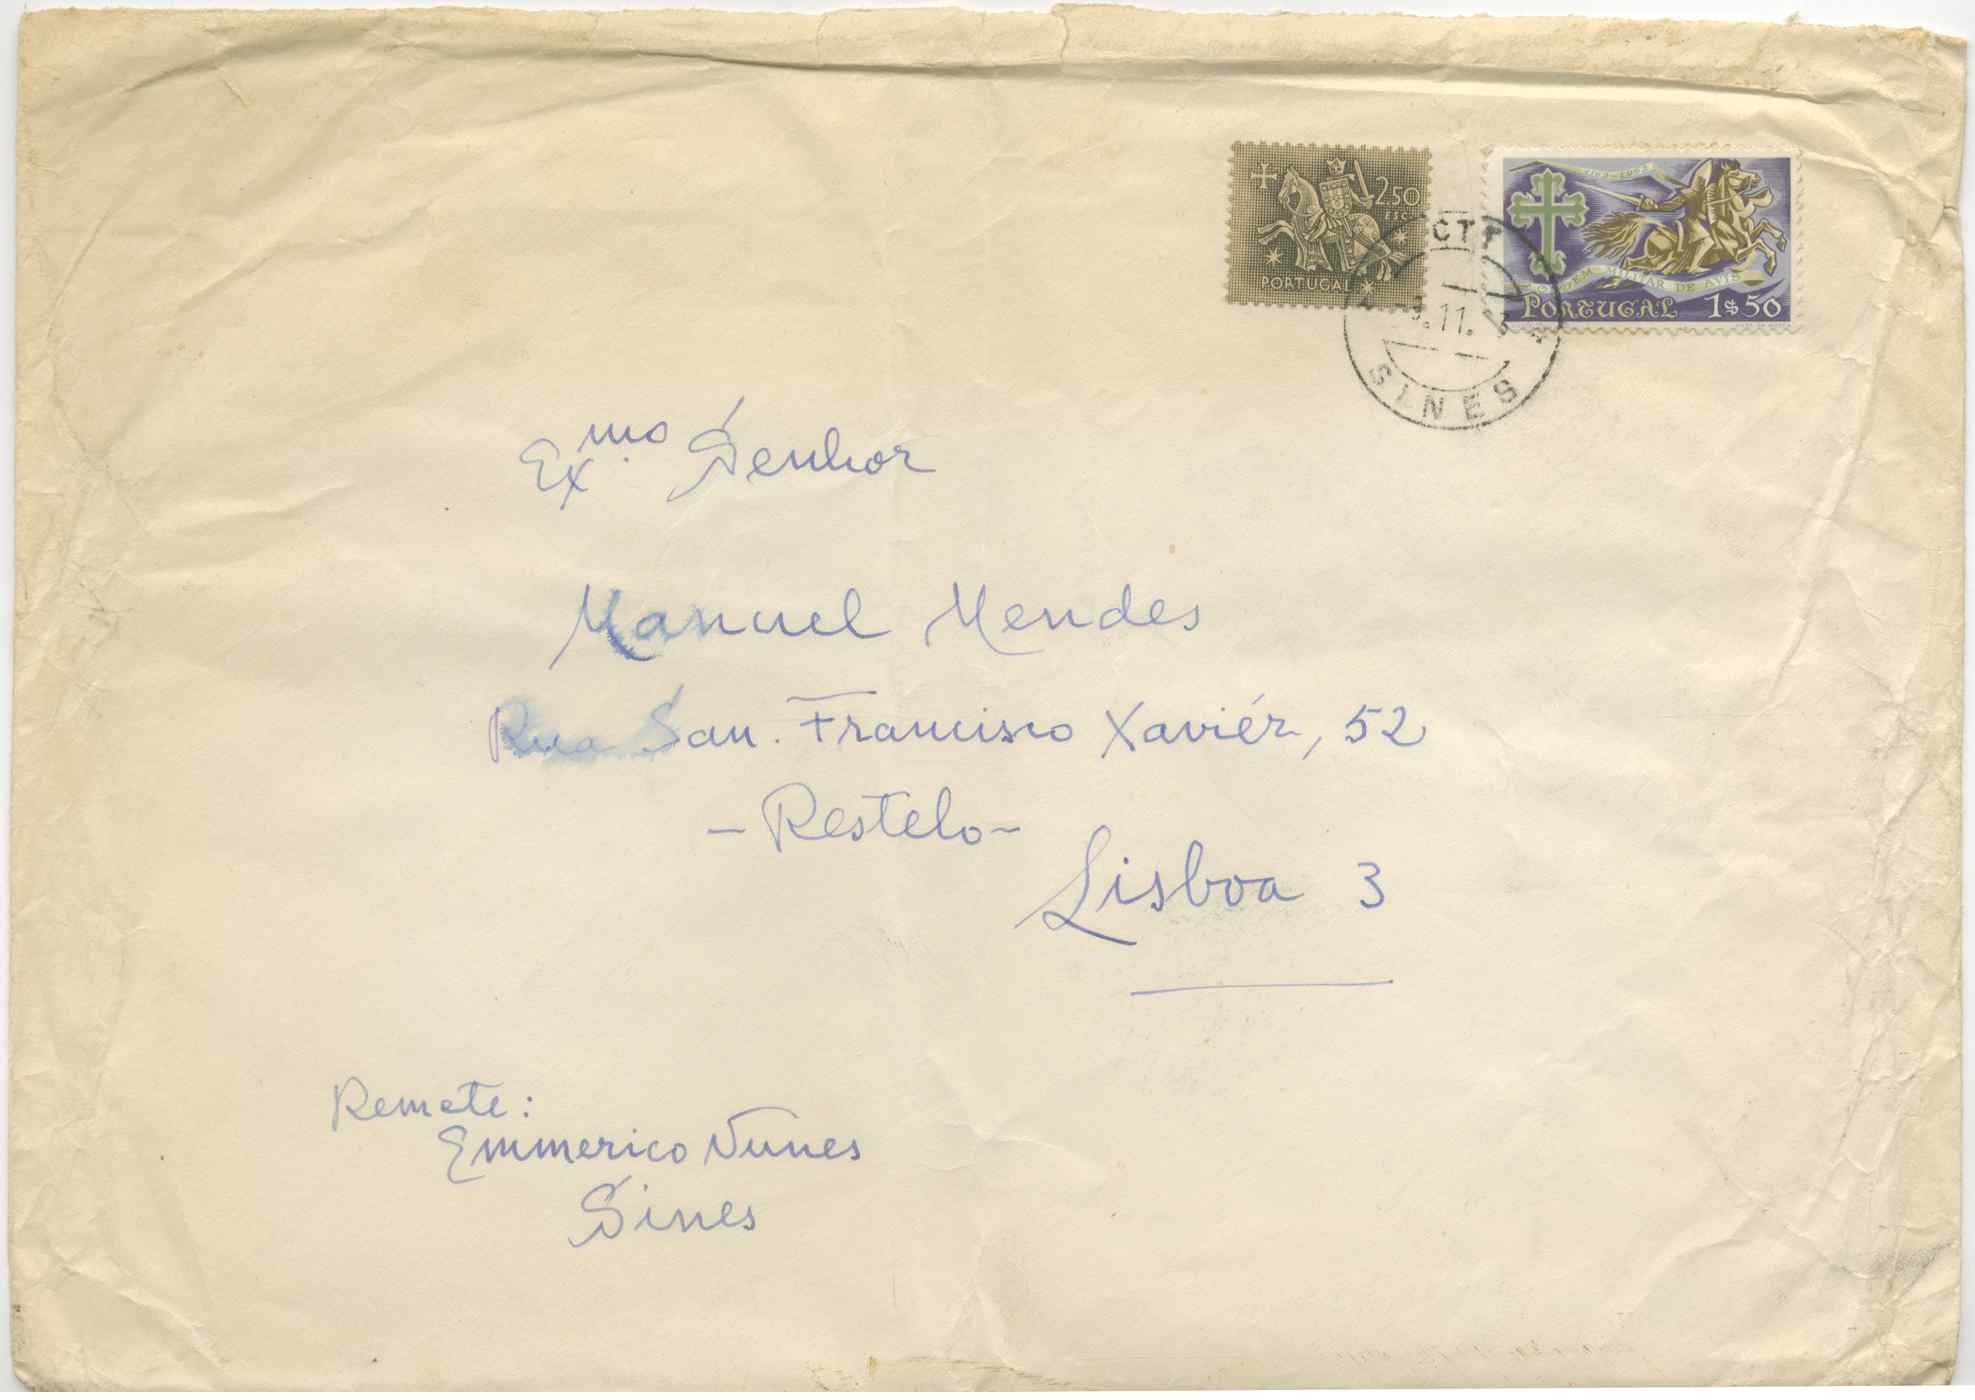 2$50
ESC.
PORTUGAL
ORDEM MILITAR DE AVIS
PORTUGAL 1$50
CTT
.11.
SINES
Exmo. Senhor
Manuel Mendes
Rua San. Francisco Xaviér, 52
- Restelo -
Lisboa 3
Remete:
Emmerico Nunes
Sines